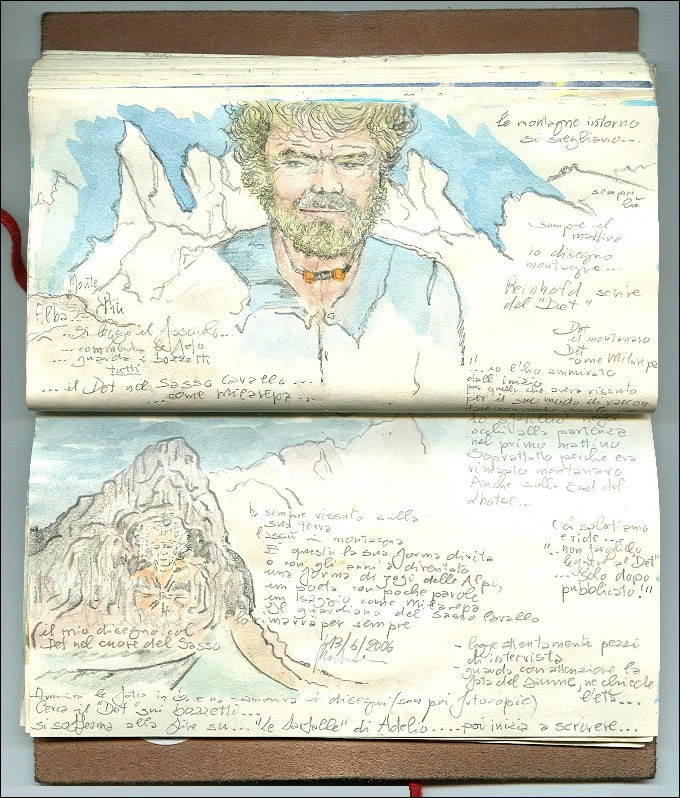 le montagne intorno
si svegliano...
sempre
lì
sempre al
mattino
io disegno
montagne...
Reinhold scrive
del "Det"
Det
il montanaro
Det
come Milarepa
Monte
Alba
...Si legge il fascicolo...
...commenta le foto
...guarda i bozzetti
tutti
...il Det nel Sasso Cavallo...
...come Milarepa...
"...io l'ho ammirato
dall'inizio
per quello che aveva vissuto
per il suo modo di raccon
occhi alla partenza
nel primo mattino
Soprattutto perché era
rimasto montanaro
Anche sulla Sud del
Lhotse...
ha sempre vissuto sulla
sua terra
lassù in montagna
E questa la sua forma di vita
e con gli anni è diventato
una forma di Jogi delle Alpi,
un poeta con poche parole
un saggio come Milarepa
il guardiano del Sasso Cavallo
rimarrà per sempre
13/6/2006
Ci salutiamo
e ride...
"...non farglielo
leggere al Det"
...solo dopo
pubblicato!"
il mio disegno col
Det nel cuore del Sasso
- legge attentamente pezzi
di intervista
- guarda con attenzione la
foto del ne chiede
l'età...
Ammira le foto in ammira i disegni (son poi fotocopie)
Cerca il "Det" sui bozzetti...
si sofferma alla fine su... "le farfalle" di Adelio.... poi inizia a scrivere...